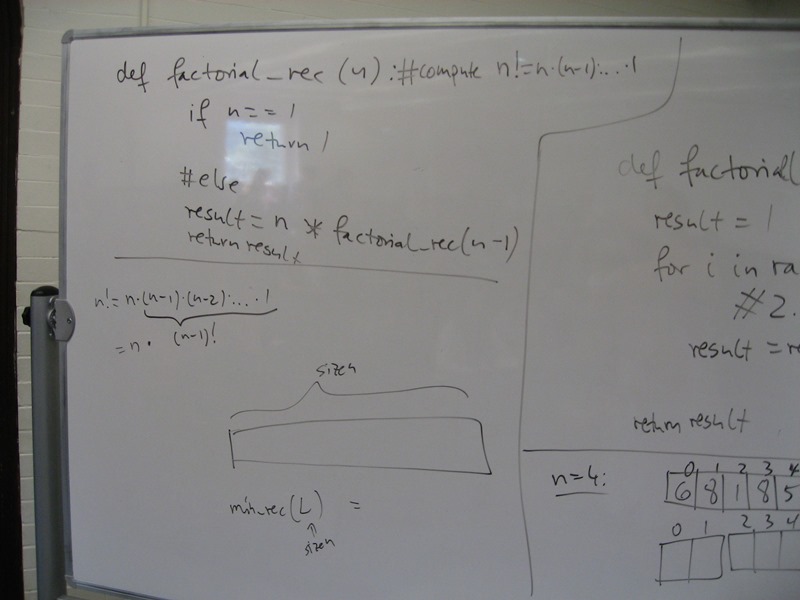 def factorial_rec (n): #compute n!=n·(n-1)·...·1
if n == 1
return 1
#else
result = n * factorial_rec(n-1)
return result
n! = n·(n-1)·(n-2)·...·1
= n· (n-1)!
size n
min_rec(L) =
size n
def factorial(
result = 1
for i in ra
#2.
result = re
return result
n=4:
0 1 2 3 4
6 8 1 8 5
0 1 2 3 4